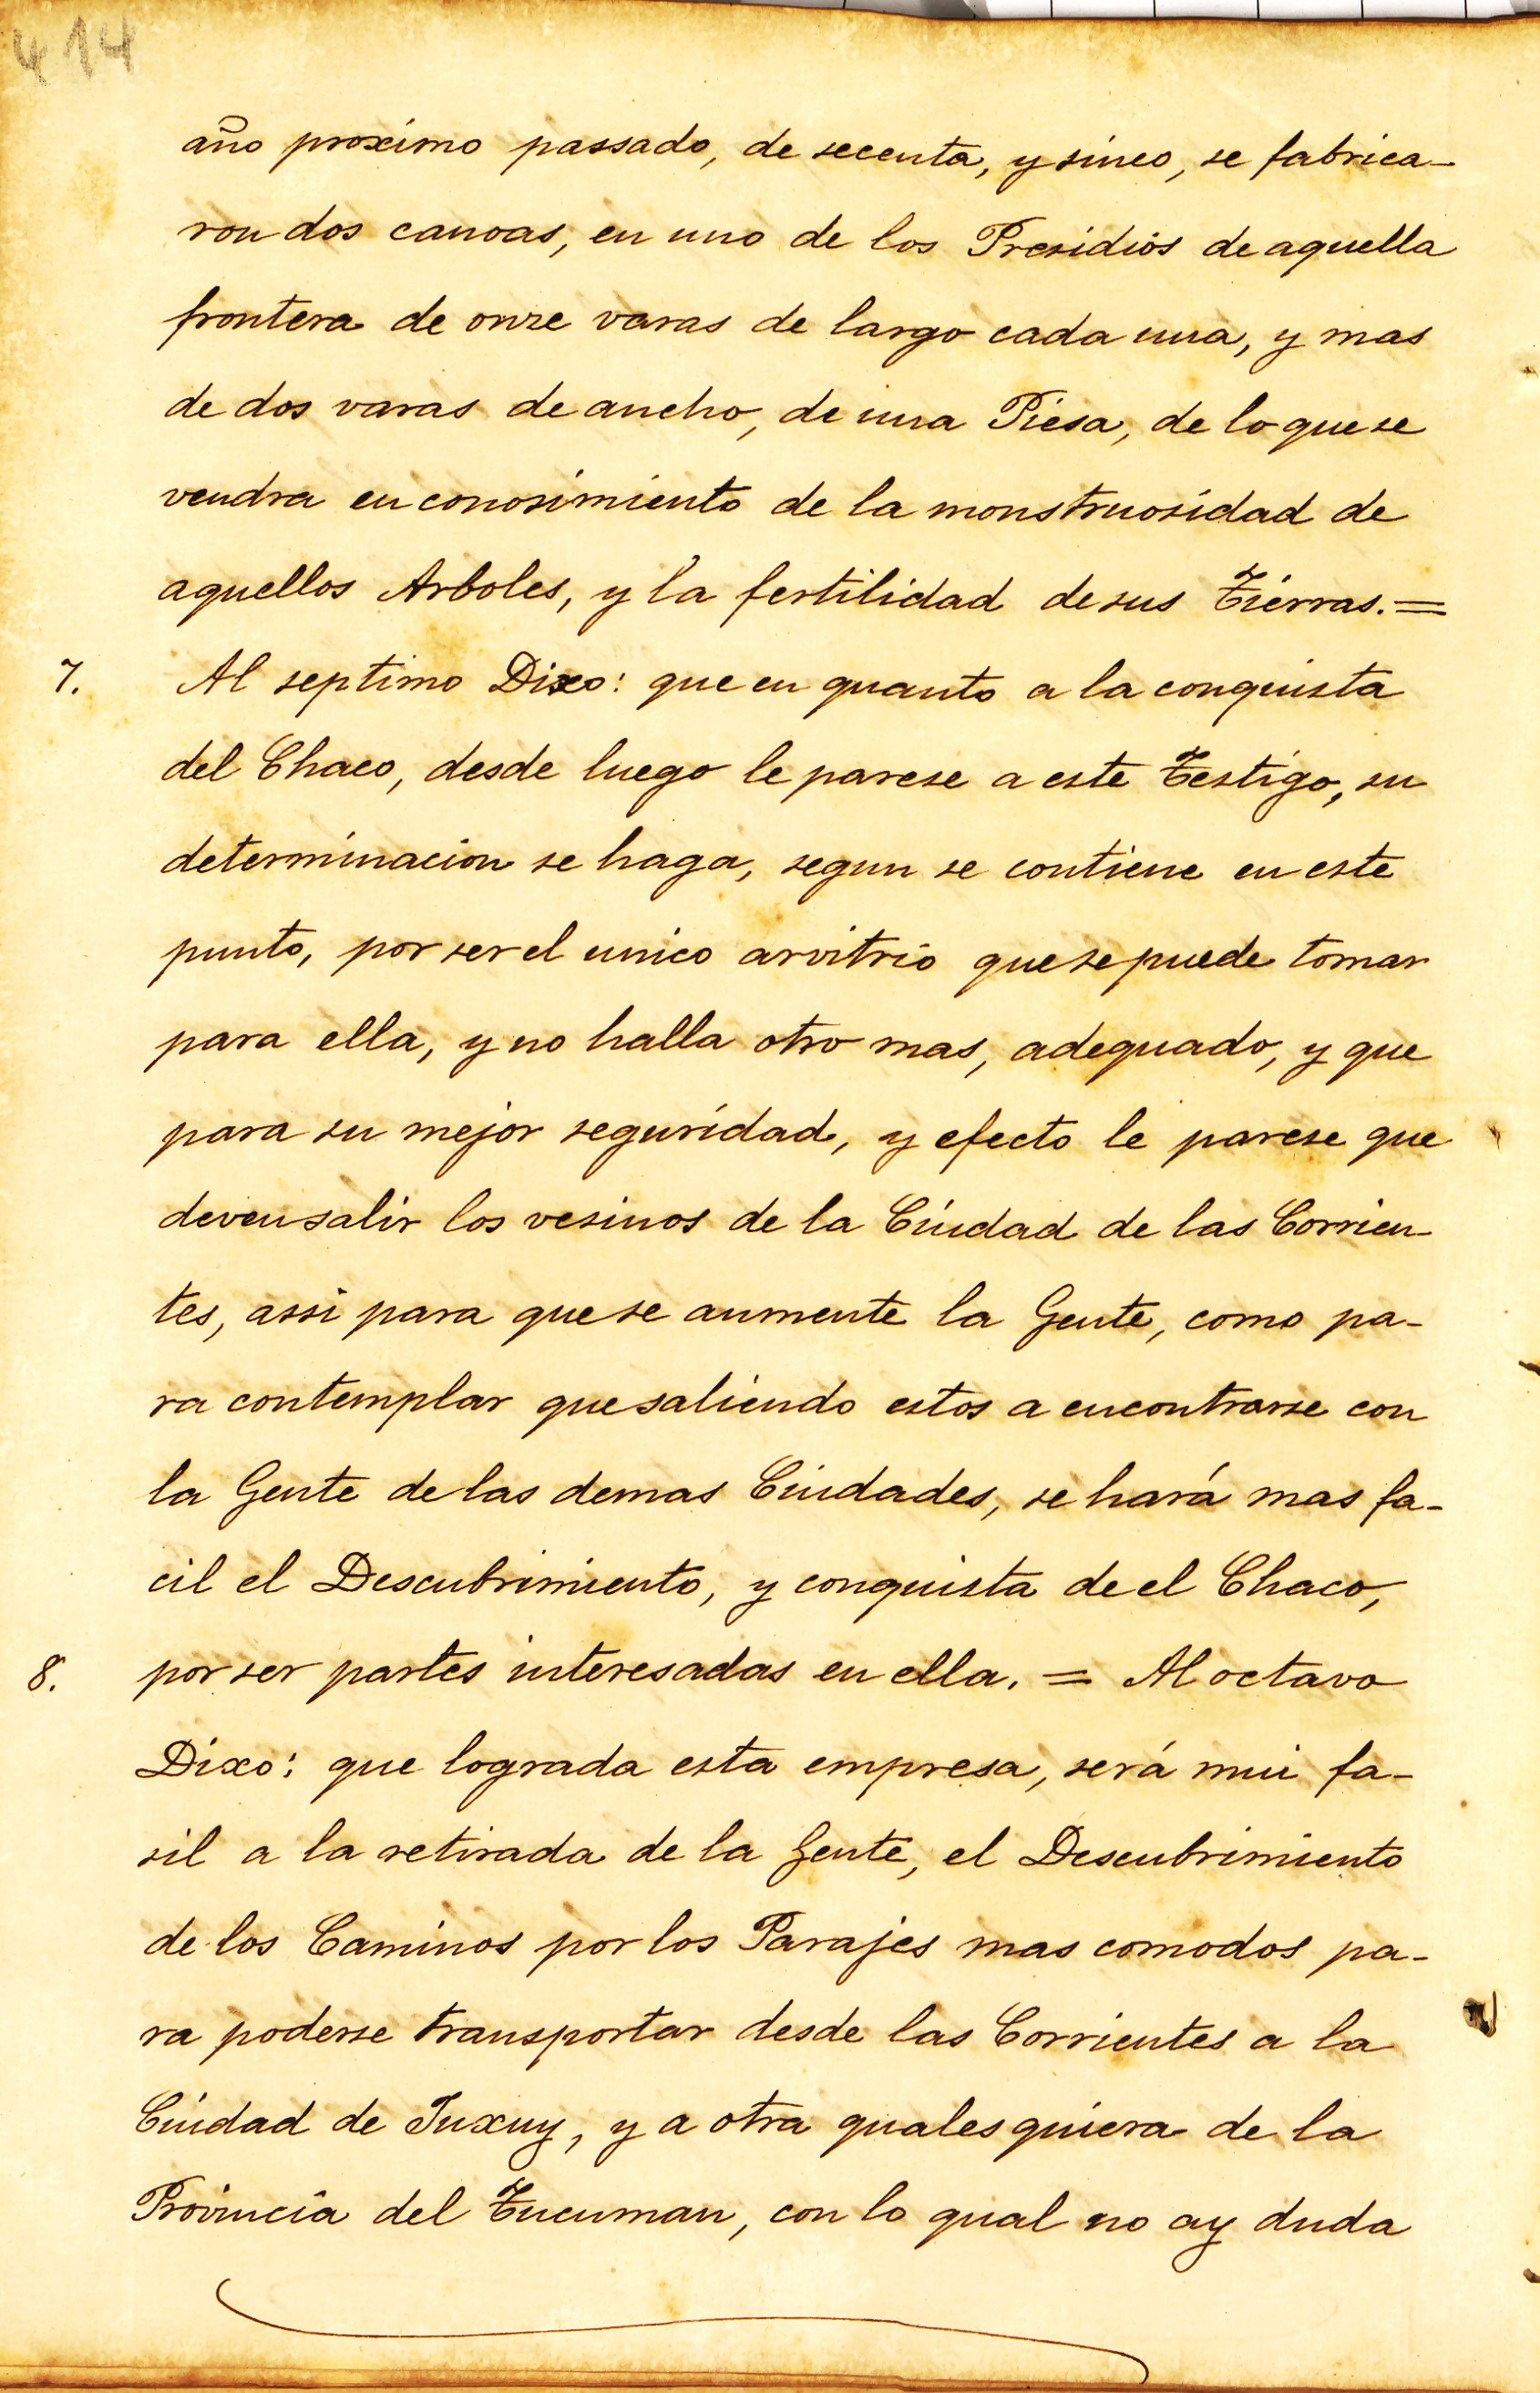 414
año proximo passado, de secenta, y sinco, se fabrica-
ron dos canoas, en uno de los Presidios de aquella
frontera de onze varas de largo cada una, y mas
de dos varas de ancho, de una Piesa, de lo que se
vendra en conosimiento de la monstruosidad de
aquellos Arboles, y la fertilidad de sus Tierras. =
7. Al septimo Dixo: que en quanto a la conquista
del Chaco, desde luego le parese a este Testigo, su
determinacion se haga, segun se contiene en este
punto, por ser el unico arvitrio que se puede tomar
para ella, y no halla otro mas, adequado, y que
para su mejor seguridad, y efecto le parese que
deven salir los vesinos de la Ciudad de las Corrien-
tes, assi para que se aumente la Gente, como pa-
ra contemplar que saliendo estos a encontrarse con
la Gente de las demas Ciudades, se hará mas fa-
cil el Descubrimiento, y conquista de el Chaco,
8. por ser partes interesadas en ella. = Al octavo
Dixo: que lograda esta empresa, será mui fa-
sil a la retirada de la Gente, el Descubrimiento
de los Caminos por los Parajes mas comodos pa-
ra poderse transportar desde las Corrientes a la
Ciudad de Juxuy, y a otra quales quiera de la
Provincia del Tucuman, con lo qual no ay duda